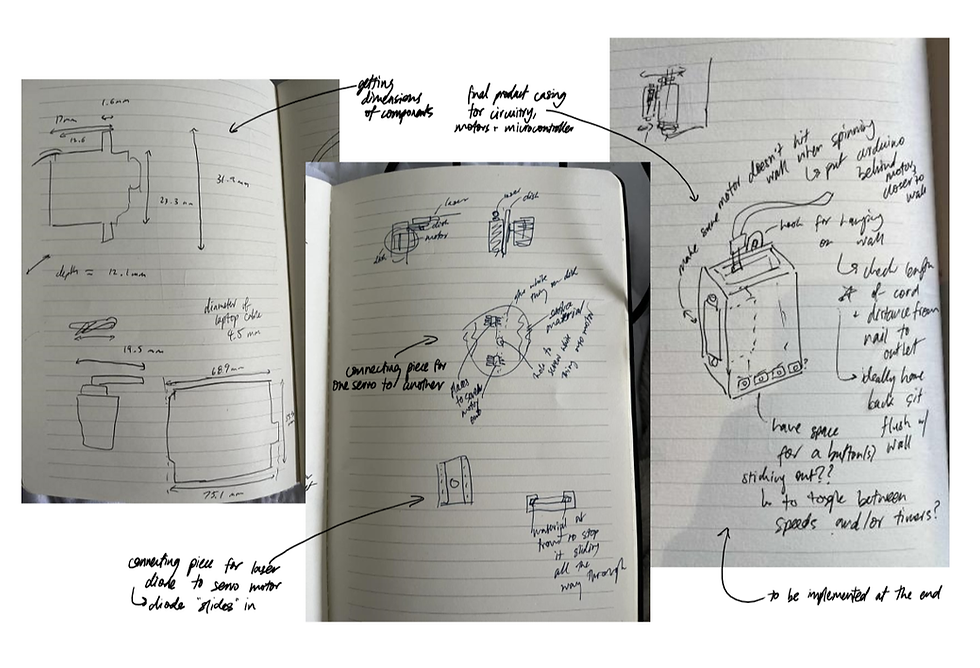 getting
dimensions
of components
final product casing
for circuitry,
motors + microcontroller
1.6mm
17mm
12.6
31.9mm
23.3 mm
depth = 12.1mm
diameter of
laptop cable
4.5 mm
19.5 mm
68.9mm
75.1 mm
laser
disk
motor
disk
connecting piece for
one servo to another
material at
front to stop
it sliding
all the
way through
connecting piece for laser
diode to servo motor
↳ diode "slides" in
make sure motor doesn't hit
wall when spinning
↳ put arduino
behind
motor,
closer to
wall
hook for hanging
on wall
↳ check length
of cord
+ distance from
nail to
outlet
→ ideally have
back sit
flush w/
wall
have space
for a button(s)
sticking out??
↳ to toggle between
speeds and/or timers?
to be implemented at the end